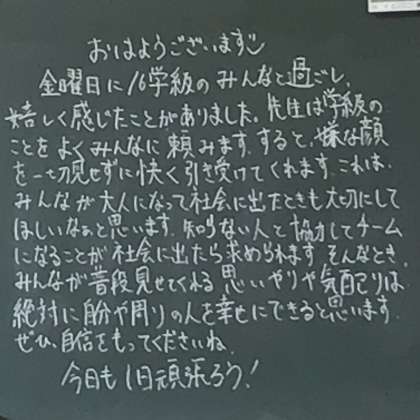 おはようございます
金曜日に16学級のみんなと過ごし、
嬉しく感じたことがありました。先生は学級の
ことをよくみんなに頼みます。すると、嫌な顔
を一切見せずに快く引き受けてくれます。これは、
みんなが大人になって社会に出たときも大切にして
ほしいなぁと思います。知らない人と協力してチーム
になることが社会に出たら求められます。そんなとき、
みんなが普段見せてくれる思いやりや気配りは、
絶対に自分や周りの人を幸せにできると思います。
ぜひ、自信をもってくださいね。
今日も1日頑張ろう!